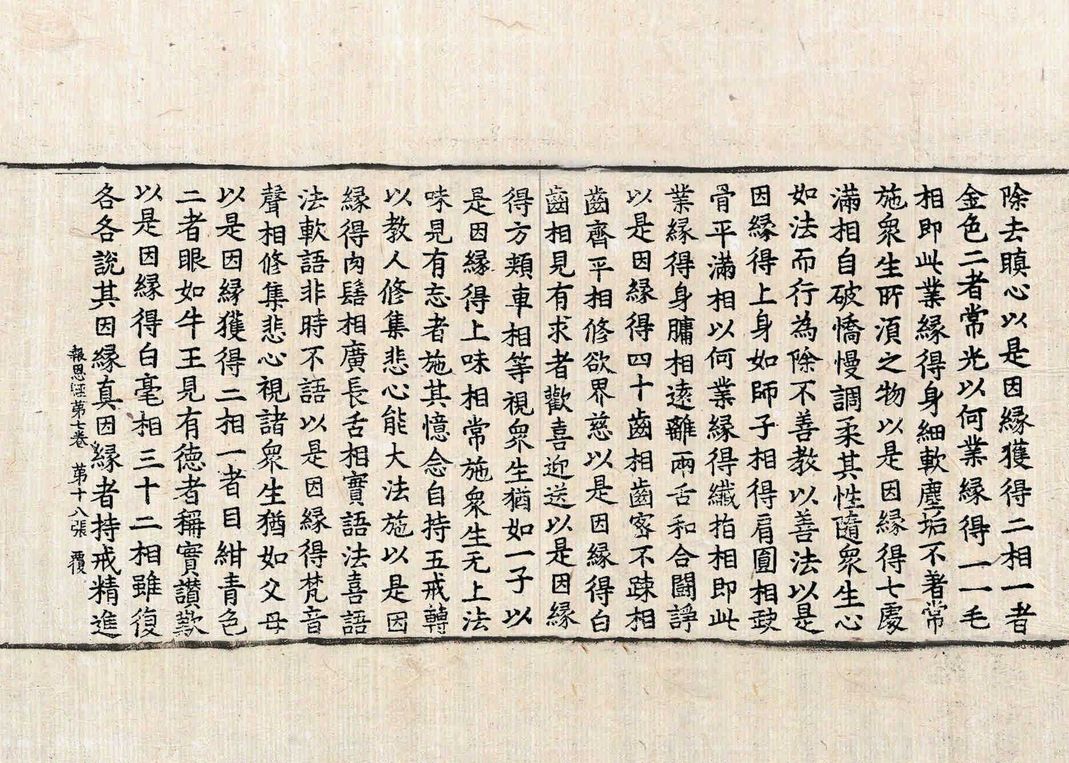 除去瞋心以是因緣獲得二相一者
金色二者常光以何業緣得一一毛
相即此業緣得身細軟塵垢不著常
施衆生所湏之物以是因緣得七處
滿相自破憍慢調柔其性隨衆生心
如法而行為除不善教以善法以是
因緣得上身如師子相得肩圓相𡙇
骨平滿相以何業緣得纖指相即此
業緣得身𦟛相逺離兩舌和合鬪諍
以是因緣得四十齒相齒宻不踈相
齒齊平相修欲界慈以是因緣得白
齒相見有求者歡喜迎送以是因緣
得方頬車相等視衆生猶如一子以
是因緣得上味相常施衆生无上法
味見有忘者施其憶念自持五戒轉
以教人修集悲心能大法施以是因
緣得肉髻相廣長舌相實語法喜語
法軟語非時不語以是因緣得梵音
聲相修集悲心視諸衆生猶如父母
以是因緣獲得二相一者目紺青色
二者眼如牛王見有徳者稱實讃歎
以是因緣得白毫相三十二相雖復
各各說其因緣真因緣者持戒精進
報恩經第七卷 第十八張 覆